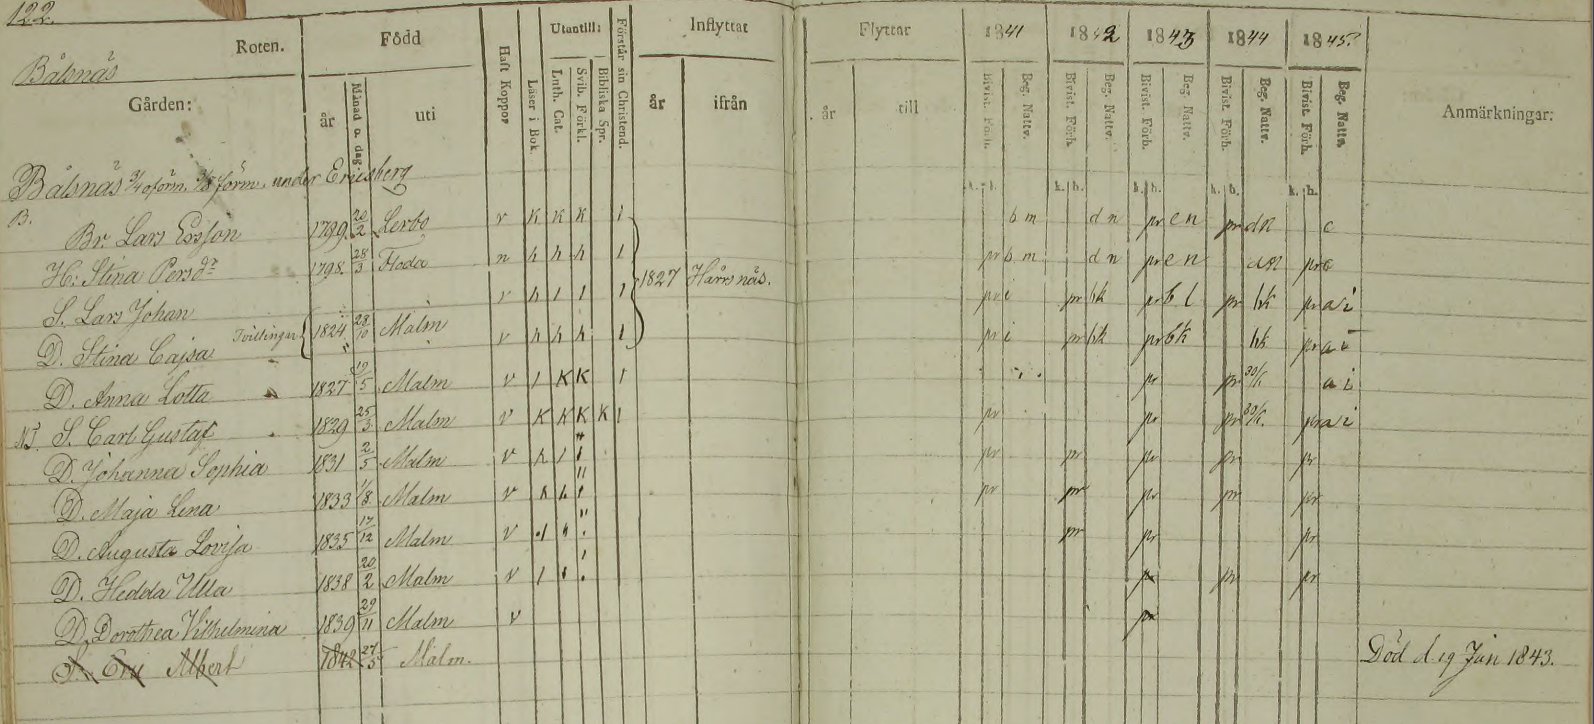 122.
Roten.
Bålsnäs
Gården:
Född
år
Månad o. dag
uti
Haft Koppor
Läser i Bok.
Utantill:
Luth. Cat.
Svib. Förkl.
Bibliska Spr.
Förstår sin Christend.
Inflyttat
år
ifrån
Flyttar
år
till
1841 1842 1843 1844 1845
Bivist. Förh. Beg. Nattv. Bivist. Förh. Beg. Nattv. Bivist. Förh. Beg. Nattv. Bivist. Förh. Beg. Nattv. Bivist. Förh. Beg. Nattv.
Anmärkningar:
Bålsnäs 3/4 oförm. 3/8 förm. under Ericsberg
h. h. h. h. h. h. h. h.
B.
Br. Lars Ersson 1789 20/2 Lerbo v K K K 1 b m d n pr e n pr d n c
H: Stina Persdr 1798 28/3 Floda n h h h 1 pr b m d n pr e n pr c
1827 Harrsnäs.
S. Lars Johan v h 1 1 1 pr i pr hk pr b l pr hk pr a i
Tvillingar 1824 28/10 Malm
D. Stina Cajsa v h h h 1 pr i pr hk pr b k hk pr a i
D. Anna Lotta 1827 19/5 Malm v 1 K K 1 pr pr 30/6 a i
S. Carl Gustaf 1829 25/3 Malm v K K K K 1 pr pr pr 30/6. pr a i
D. Johanna Sophia 1831 2/5 Malm v h 1 pr pr pr pr pr
D. Maja Lena 1833 1/8 Malm v h h pr pr pr pr pr
D. Augusta Lovisa 1835 17/12 Malm v pr pr pr
D. Hedda Ulla 1838 20/2 Malm v 1 pr pr pr
D. Dorothea Vilhelmina 1839 29/11 Malm v pr
S. Eric Albert 1842 27/5 Malm. Död d. 19 Jun 1843.